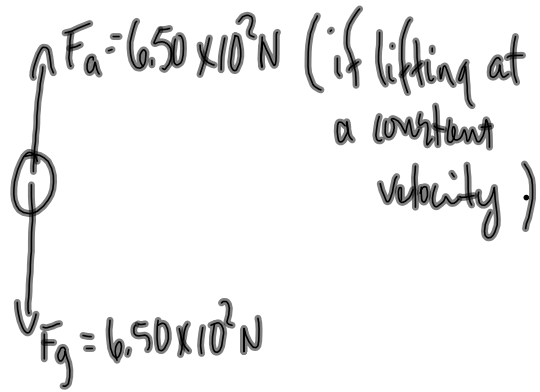 Fa = 6.50 x 10² N (if lifting at
a constant
velocity.)
Fg = 6.50 x 10² N